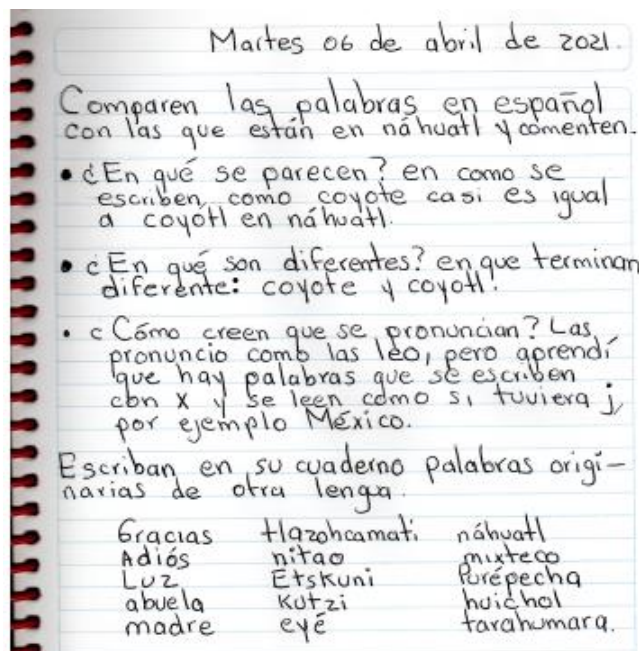 Martes 06 de abril de 2021.
Comparen las palabras en español
con las que están en náhuatl y comenten.
• ¿En qué se parecen? en como se
escriben, como coyote casi es igual
a coyótl en náhuatl.
• ¿En qué son diferentes? en que terminan
diferente: coyote y coyotl.
• ¿Cómo creen que se pronuncian? Las
pronuncio como las leo, pero aprendí
que hay palabras que se escriben
con x y se leen como si tuviera j,
por ejemplo México.
Escriban en su cuaderno palabras origi-
narias de otra lengua.
Gracias tlazohcamati náhuatl
Adiós nitao mixteco
Luz Etskuni Purépecha
abuela Kutzi huichol
madre eyé tarahumara.